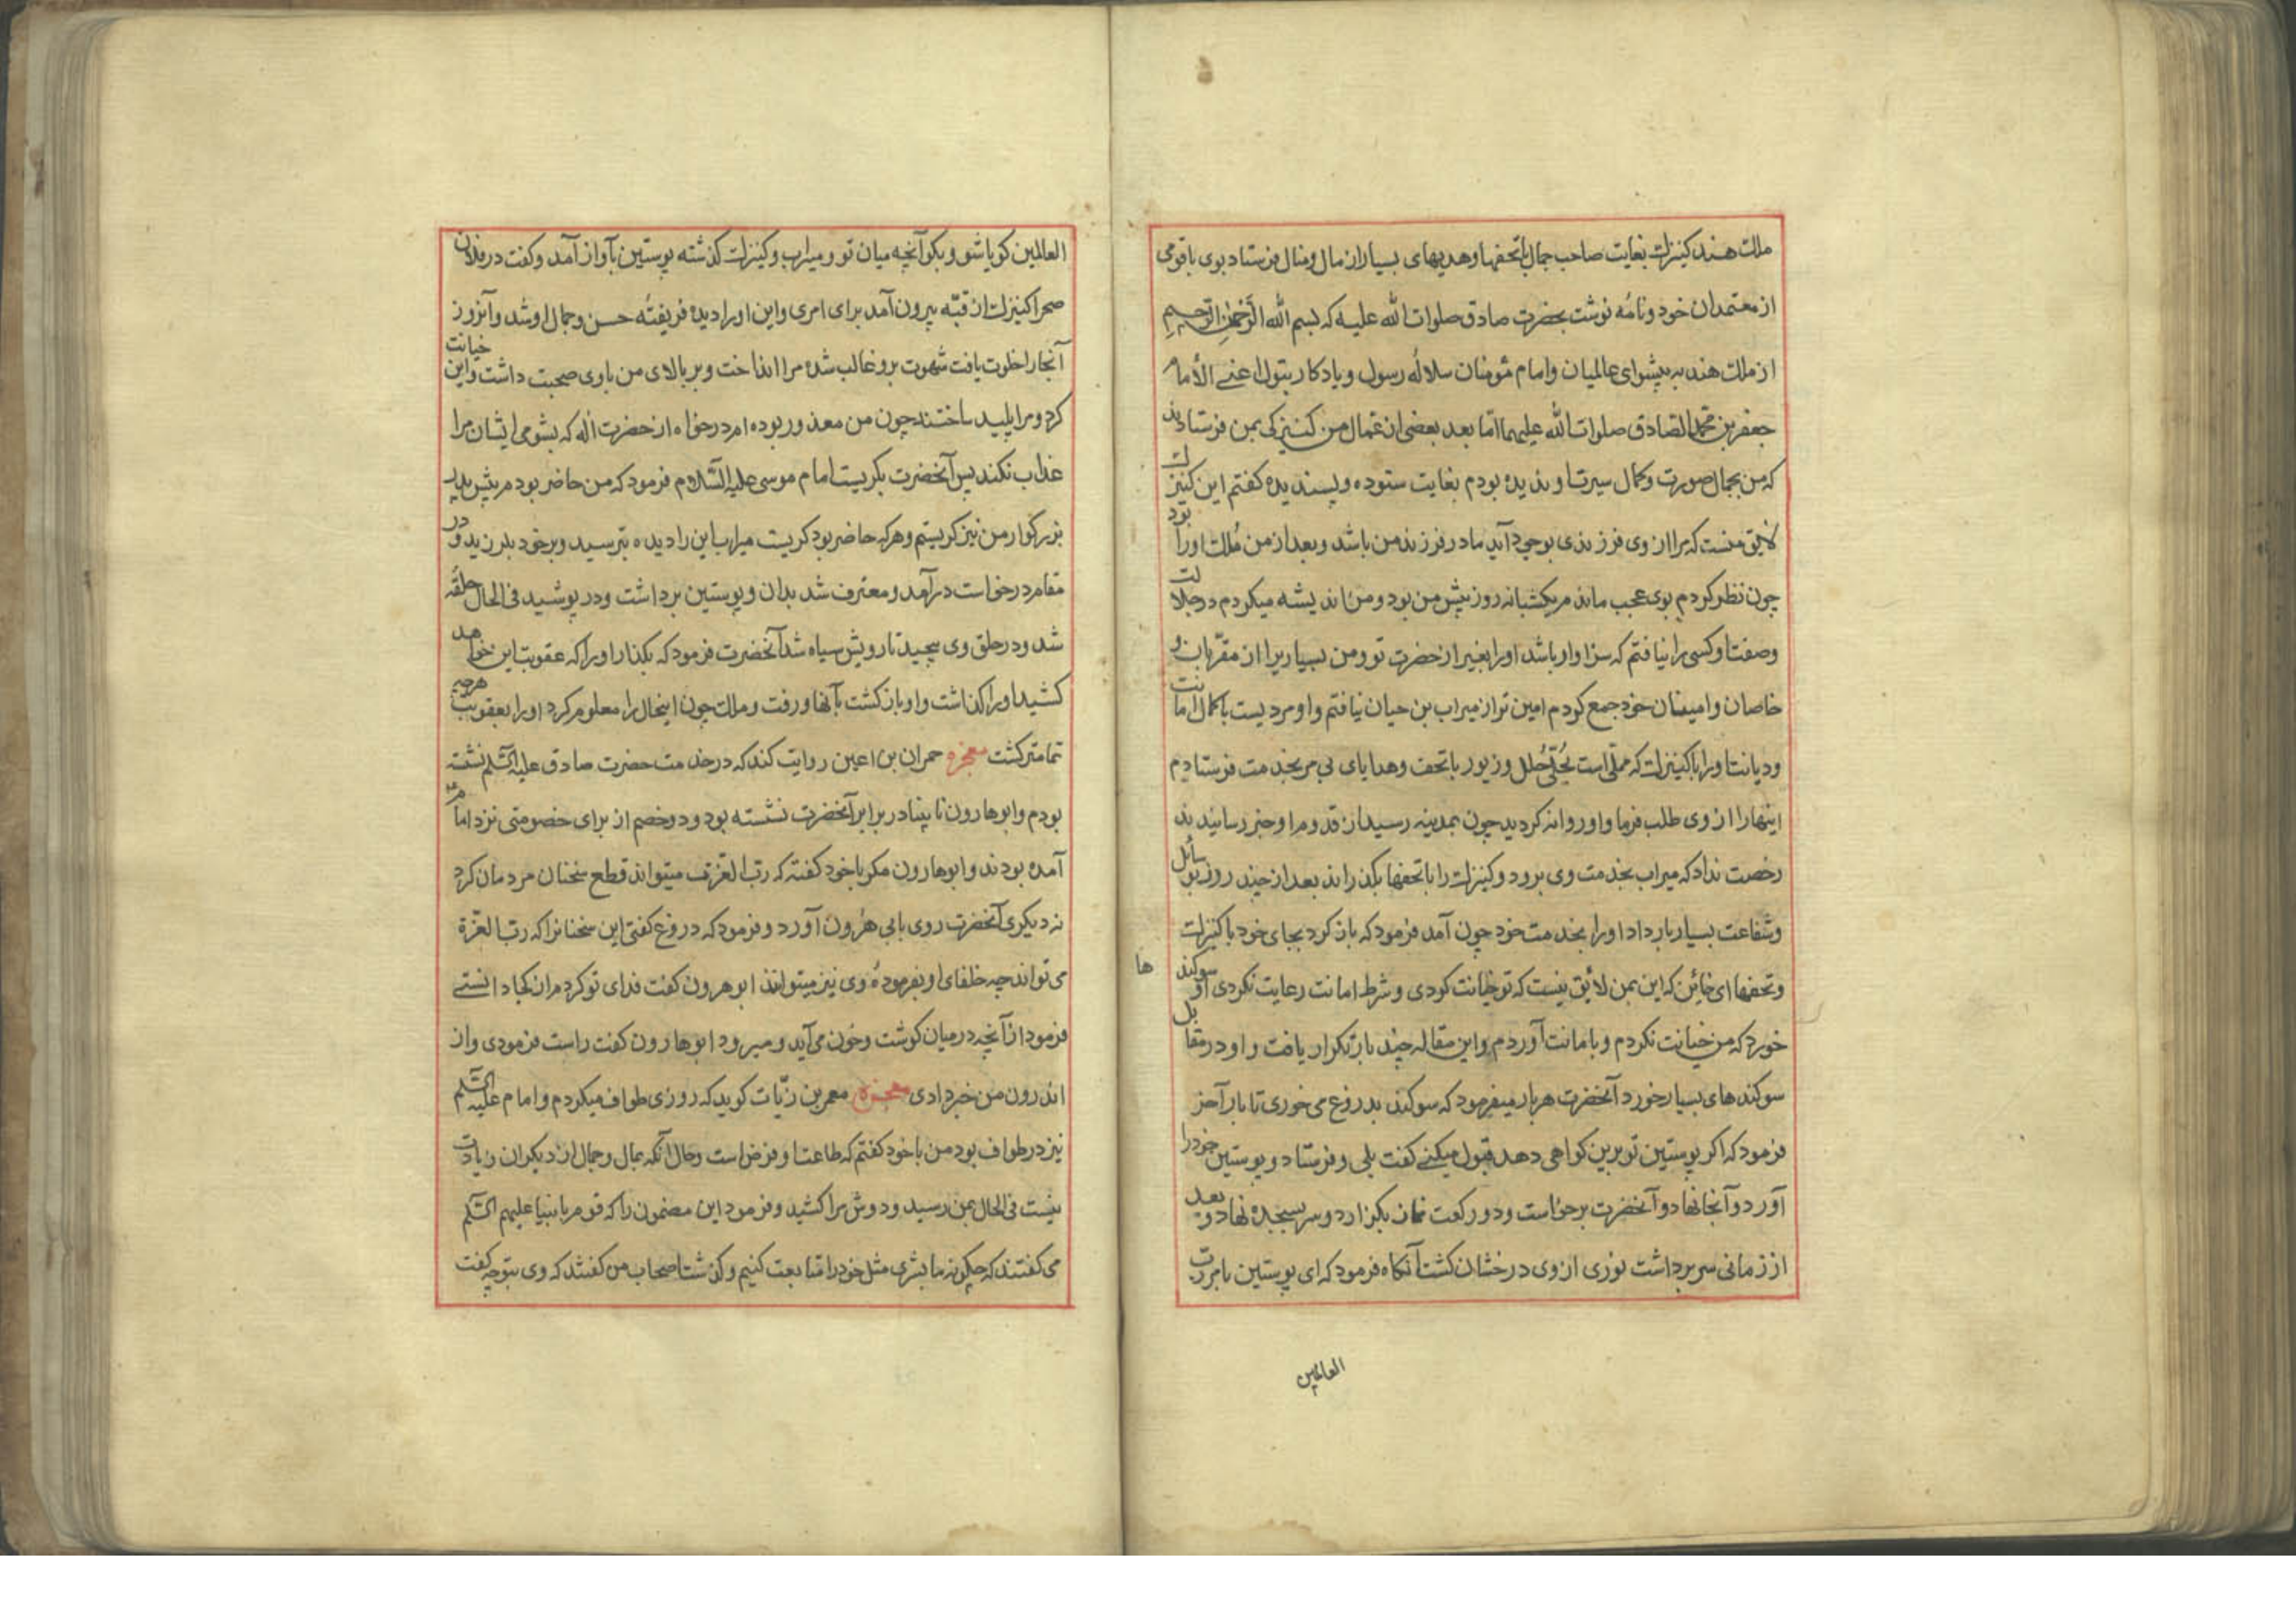 ملک هند کنیزک بغایت صاحب جمال باتحفها وهدیهای بسیار از مال ومنال فرستاد بوی باقومی
از معتمدان خود ونامه نوشت بحضرت صادق صلوات الله علیه که بسم الله الرحمن الرحیم
از ملک هند به پیشوای عالمیان وامام مؤمنان سلاله رسول ویادکار بتول اعنی الأمام
جعفر بن محمد الصادق صلوات الله علیهما امّا بعد بعضی از عمال من کنیزکی بمن فرستادند
که من بجمال صورت وکمال سیرت او ندیده بودم بغایت ستوده وپسندیده کفتم این کنیزک
لایق منست که مرا از وی فرزندی بوجود آید مادر فرزند من باشد وبعد از من ملک او را بود
چون نظر کردم بوی عجب ماندم یکشبانه روز پیش من بود ومن اندیشه میکردم در جلالت
وصفت او کسی را نیافتم که سزاوار باشد او را بغیر از حضرت تو ومن بسیاریرا از مقرّبان و
خاصان وامینان خود جمع کردم امین تر از میراب بن حیان نیافتم واو مردیست باکمال امانت
ودیانت او را باکنیزک که محلّی است بحُلّی حُلل وزیور باتحف وهدایای بی مر بخدمت فرستادیم
اینها را از وی طلب فرما واو روانه کردید چون بمدینه رسید از قدوم او خبر رسانیدند
رخصت نداد که میراب بخدمت وی برود وکنیزک را باتحفها بکذراند بعد از چند روز بوسائل
وشفاعت بسیار بار داد او را بخدمت خود چون آمد فرمود که باز کرد بجای خود باکنیزک
وتحفها ای خائن که این بمن لائق نیست که تو خیانت کردی وشرط امانت رعایت نکردی او سوکند ها
خورد که من خیانت نکردم وبامانت آوردم واین مقاله چند بار تکرار یافت واو در مقابل
سوکندهای بسیار خورد آنحضرت هر بار میفرمود که سوکند بدروغ می خوری تا بار آخر
فرمود که اکر پوستین تو برین کواهی دهد قبول میکنی کفت بلی وفرستاد وپوستین خود را
آورد وآنجا نهاد وآنحضرت برخاست ودو رکعت نماز بکزارد وسر بسجده نهاد وبعد
از زمانی سر برداشت نوری از وی درخشان کشت آنکاه فرمود که ای پوستین بامر رب
العالمین
العالمین کویا شو وبکو آنچه میان تو ومیراب وکنیزک کذشته پوستین بآواز آمد وکفت در فلان
صحرا کنیزک از قبّه بیرون آمد برای امری واین او را دیده فریفته حسن وجمال او شد وآنروز
آنجا را خلوت یافت شهوت برو غالب شده مرا انداخت وبر بالای من باوی صحبت داشت واین خیانت
کرد ومرا پلید ساختند چون من معذور بوده ام درخواه از حضرت اله که بشومی ایشان مرا
عذاب نکند پس آنحضرت بکریست امام موسی علیه السّلام فرمود که من حاضر بودم پیش پدر
بزرکوار من نیز کریستم وهر که حاضر بود کریست میراب این را دیده بترسید وبر خود بلرزید ودر
مقام درخواست درآمد ومعترف شد بدان وپوستین برداشت ودر پوشید فی الحال حلقه
شد ودر حلق وی پیچید تا رویش سیاه شد آنحضرت فرمود که بکذار او را که عقوبت این خواهد
کشید او را کذاشت واو باز کشت بآنها ورفت وملک چون اینحال را معلوم کرد او را بعقوبت هرچه
تمامتر کشت معجزه حمران بن اعین روایت کند که در خدمت حضرت صادق علیه السّلم نشسته
بودم وابوهارون نابینا در برابر آنحضرت نشسته بود ودو خصم از برای خصومتی نزد امام
آمده بودند وابوهارون مکر باخود کفته که رب العزّت میتواند قطع سخنان مردمان کرد
نه دیکری آنحضرت روی بابی هرون آورد وفرمود که دروغ کفتی این سخنانرا که رب العزّة
می تواند چه خلفای او بفرموده وی نیز میتوانند ابوهرون کفت فدای تو کردم از کجا دانستی
فرمود از آنچه در میان کوشت وخون می آید ومیرود ابوهارون کفت راست فرمودی واز
اندرون من خبر دادی معجزه معمر بن زیّات کوید که روزی طواف میکردم وامام علیه السّلم
نیز در طواف بود من باخود کفتم که طاعت او فرض است وحال آنکه بمال وجمال از دیکران زیادت
نیست فی الحال بمن رسید ودوش مرا کشید وفرمود این مضمون را که قوم بانبیا علیهم السّلم
می کفتند که چکونه ما بشری مثل خود را متابعت کنیم وکذشت اصحاب من کفتند که وی بتو چه کفت